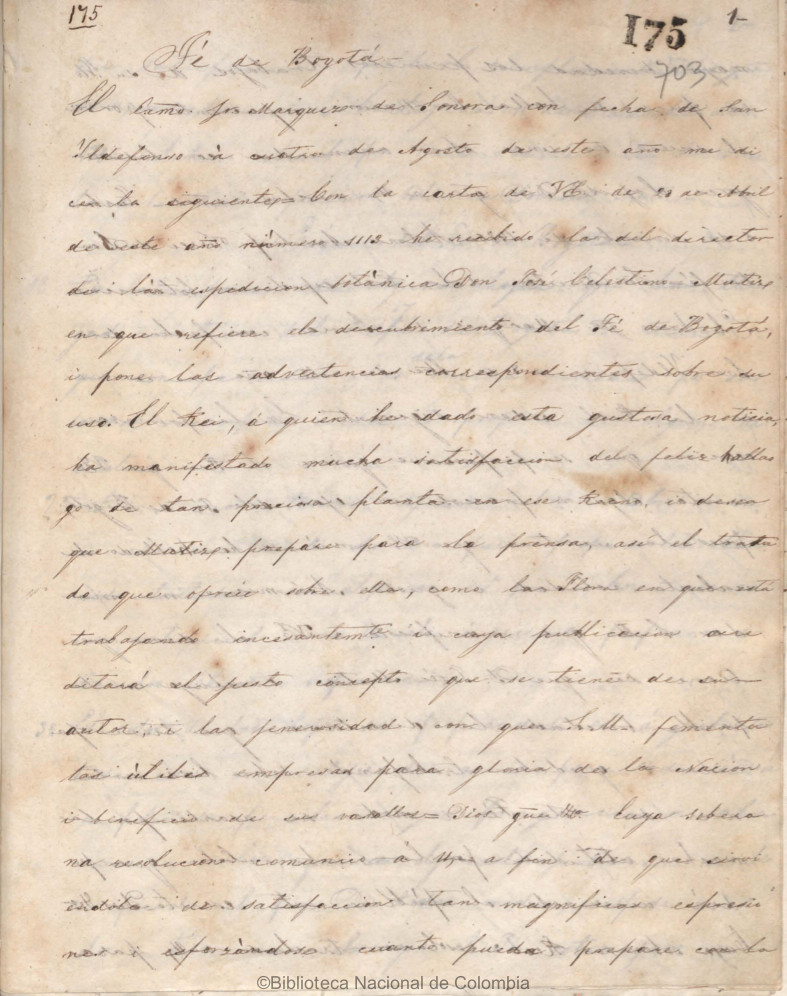 175
175
1-
703
Té de Bogotá-
El Exmo. sor Marques de Sonora con fecha de San
Yldefonso à cuatro de Agosto de este año me di
ce lo siguiente= Con la carta de VE. de 20 de Abril
de este año número 1112 he recibido la del director
de la espedicion botánica Don José Celestino Mutis
en que refiere el descubrimiento del Té de Bogotá,
i pone las advertencias correspondientes sobre su
uso. El Rei, á quien he dado esta gustosa noticia,
ha manifestado mucha satisfaccion del feliz halla
go de tan preciosa planta en ese Reino, i desea
que Mutis prepare para la prensa, asi el trata
do que ofrece sobre ella, como la Flora en que está
trabajando incesantemte i cuya publicacion acre
ditará el justo concepto que se tiene de su
autor, i la generosidad con que S.M. fomenta
tas útiles empresas para gloria de la Nacion
i beneficio de sus vasallos= Dios gue Cuya sobera
na resolucion comunico à Um a fin de que sirvi
endole de satisfaccion tan magnificas espresio
nes i esforzandose cuanto pueda prepare con la
©Biblioteca Nacional de Colombia